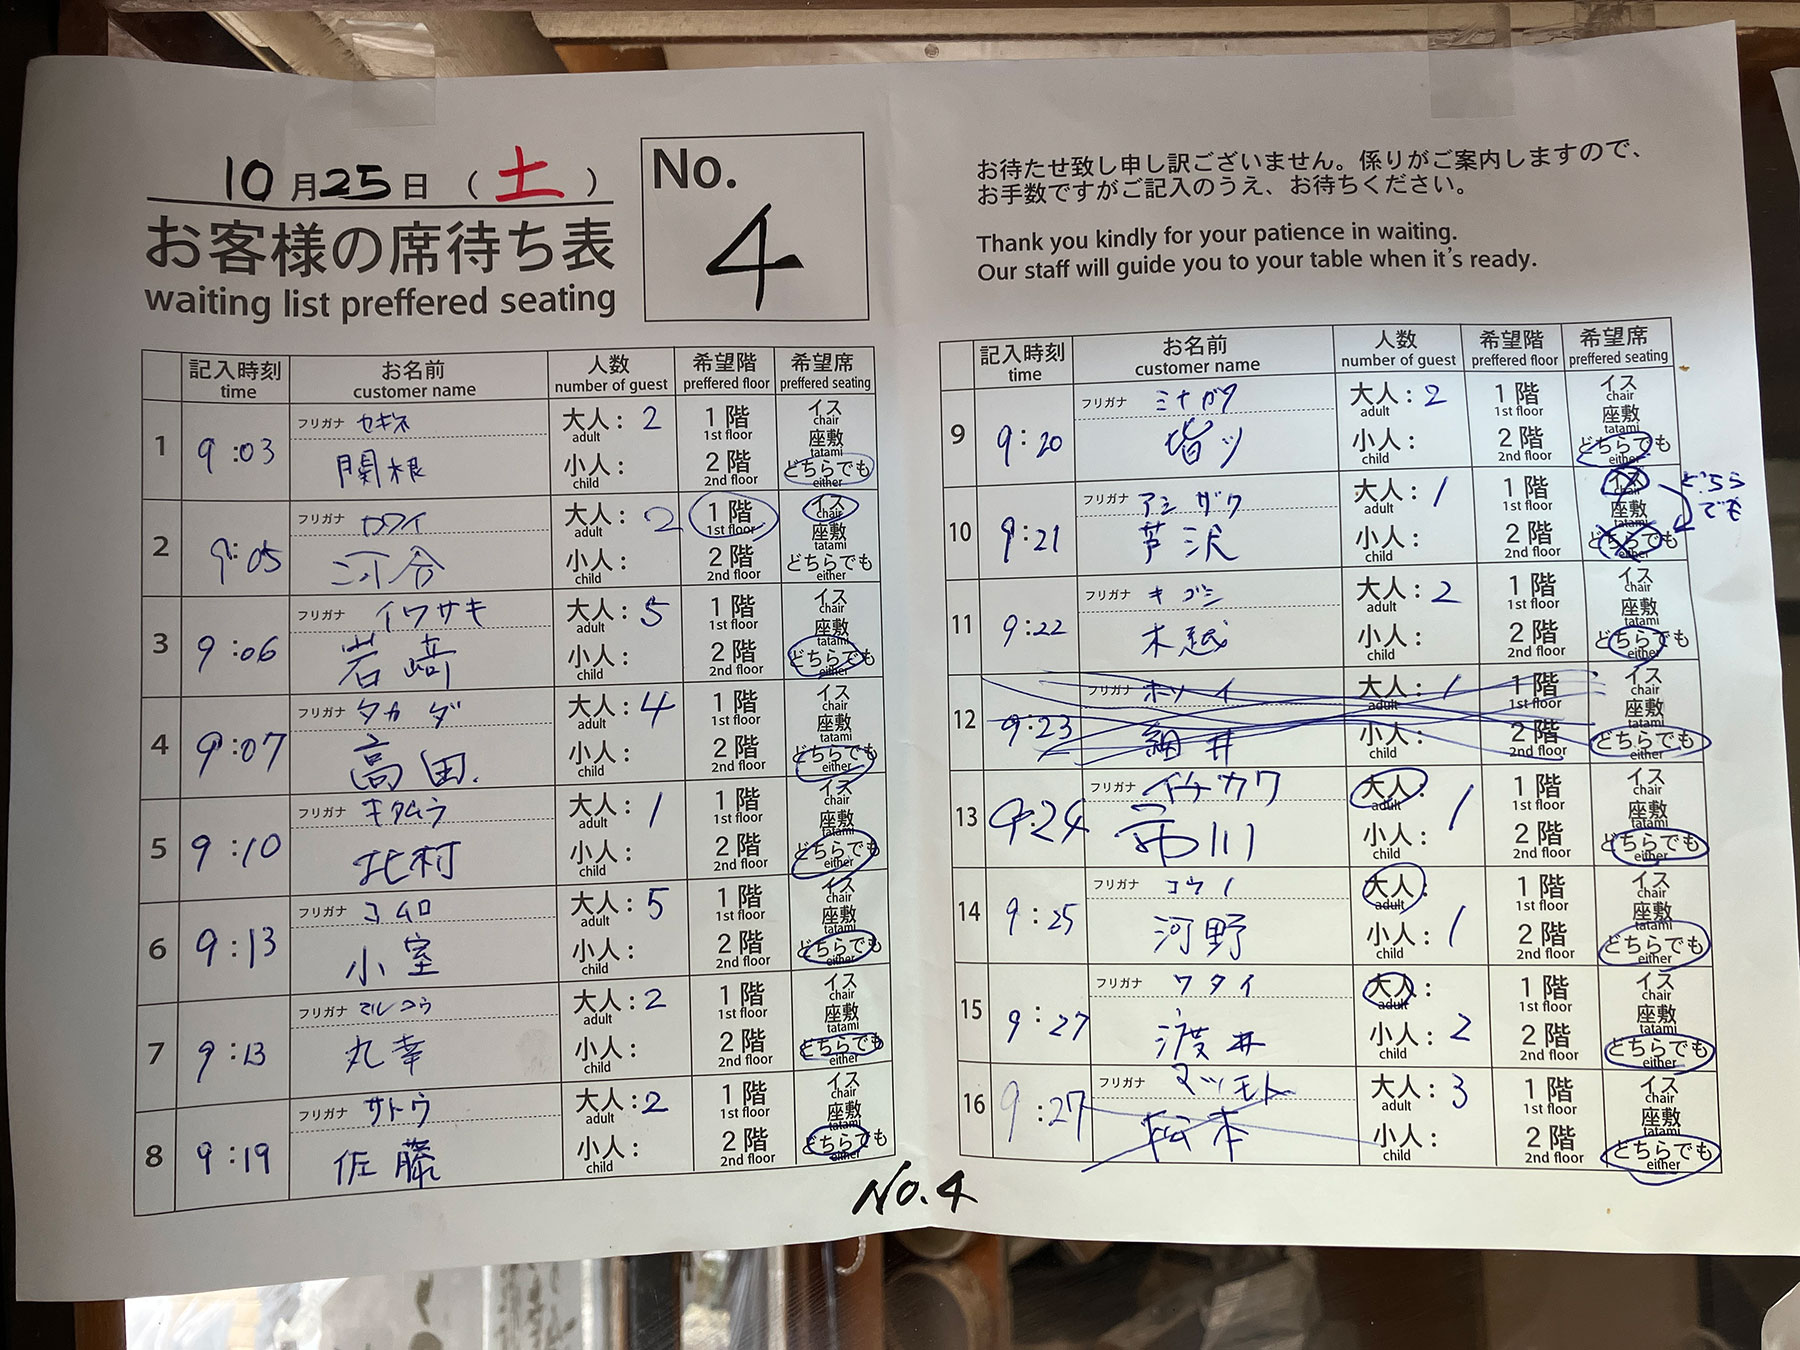 10月25日（土）
お客様の席待ち表
waiting list preffered seating
No.
4
お待たせ致し申し訳ございません。係りがご案内しますので、
お手数ですがご記入のうえ、お待ちください。
Thank you kindly for your patience in waiting.
Our staff will guide you to your table when it's ready.
記入時刻 お名前 人数 希望階 希望席
time customer name number of guest preffered floor preffered seating
1 9:03 フリガナ セキネ 大人：2 1階 イス
adult 1st floor chair
座敷
tatami
関根 小人： 2階 どちらでも
child 2nd floor either
2 9:05 フリガナ カワイ 大人：2 1階 イス
adult 1st floor chair
座敷
tatami
河合 小人： 2階 どちらでも
child 2nd floor either
3 9:06 フリガナ イワサキ 大人：5 1階 イス
adult 1st floor chair
座敷
tatami
岩﨑 小人： 2階 どちらでも
child 2nd floor either
4 9:07 フリガナ タカダ 大人：4 1階 イス
adult 1st floor chair
座敷
tatami
高田. 小人： 2階 どちらでも
child 2nd floor either
5 9:10 フリガナ キタムラ 大人：1 1階 イス
adult 1st floor chair
座敷
tatami
北村 小人： 2階 どちらでも
child 2nd floor either
6 9:13 フリガナ コムロ 大人：5 1階 イス
adult 1st floor chair
座敷
tatami
小室 小人： 2階 どちらでも
child 2nd floor either
7 9:13 フリガナ マルコウ 大人：2 1階 イス
adult 1st floor chair
座敷
tatami
丸幸 小人： 2階 どちらでも
child 2nd floor either
8 9:19 フリガナ サトウ 大人：2 1階 イス
adult 1st floor chair
座敷
tatami
佐藤 小人： 2階 どちらでも
child 2nd floor either
記入時刻 お名前 人数 希望階 希望席
time customer name number of guest preffered floor preffered seating
9 9:20 フリガナ ミナガワ 大人：2 1階 イス
adult 1st floor chair
座敷
tatami
小人： 2階 どちらでも
child 2nd floor either
10 9:21 フリガナ アシザワ 大人：1 1階 イス どちら
adult 1st floor chair でも
座敷
tatami
芦沢 小人： 2階 どちらでも
child 2nd floor either
11 9:22 フリガナ キゴシ 大人：2 1階 イス
adult 1st floor chair
座敷
tatami
木越 小人： 2階 どちらでも
child 2nd floor either
12 9:23 フリガナ ホソイ 大人：1 1階 イス
adult 1st floor chair
座敷
tatami
細井 小人： 2階 どちらでも
child 2nd floor either
13 9:24 フリガナ イチカワ 大人：1 1階 イス
adult 1st floor chair
座敷
tatami
市川 小人： 2階 どちらでも
child 2nd floor either
14 9:25 フリガナ コウノ 大人： 1階 イス
adult 1st floor chair
座敷
tatami
河野 小人：1 2階 どちらでも
child 2nd floor either
15 9:27 フリガナ ワタイ 大人： 1階 イス
adult 1st floor chair
座敷
tatami
渡井 小人：2 2階 どちらでも
child 2nd floor either
16 9:27 フリガナ マツモト 大人：3 1階 イス
adult 1st floor chair
座敷
tatami
松本 小人： 2階 どちらでも
child 2nd floor either
No.4